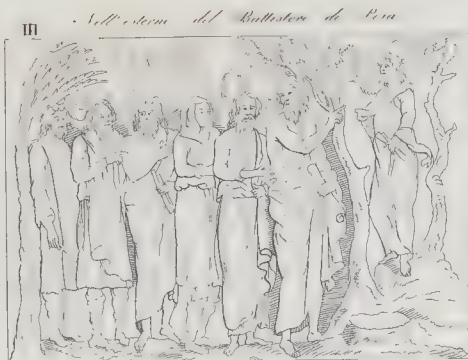 Nell'esterno del Battistero di Pisa
III